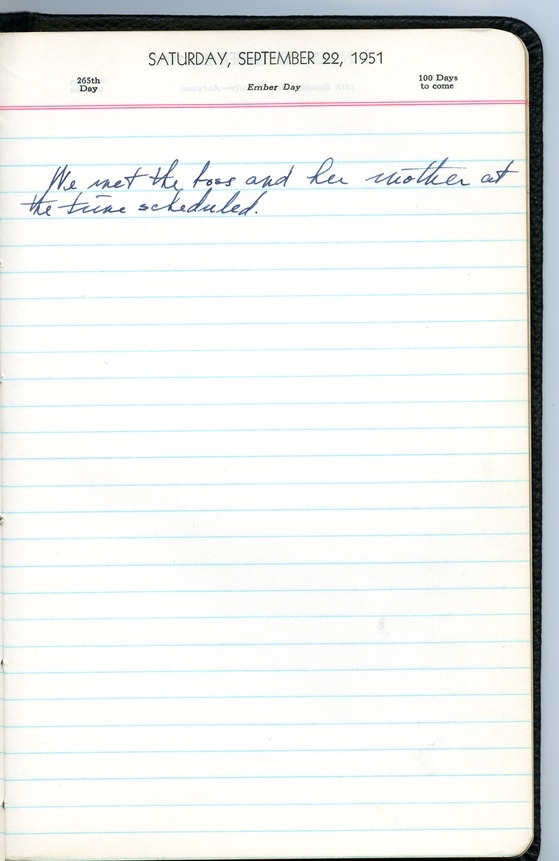 SATURDAY, SEPTEMBER 22, 1951
265th Day
Ember Day
100 Days to come
We met the boss and her mother at
the time scheduled.